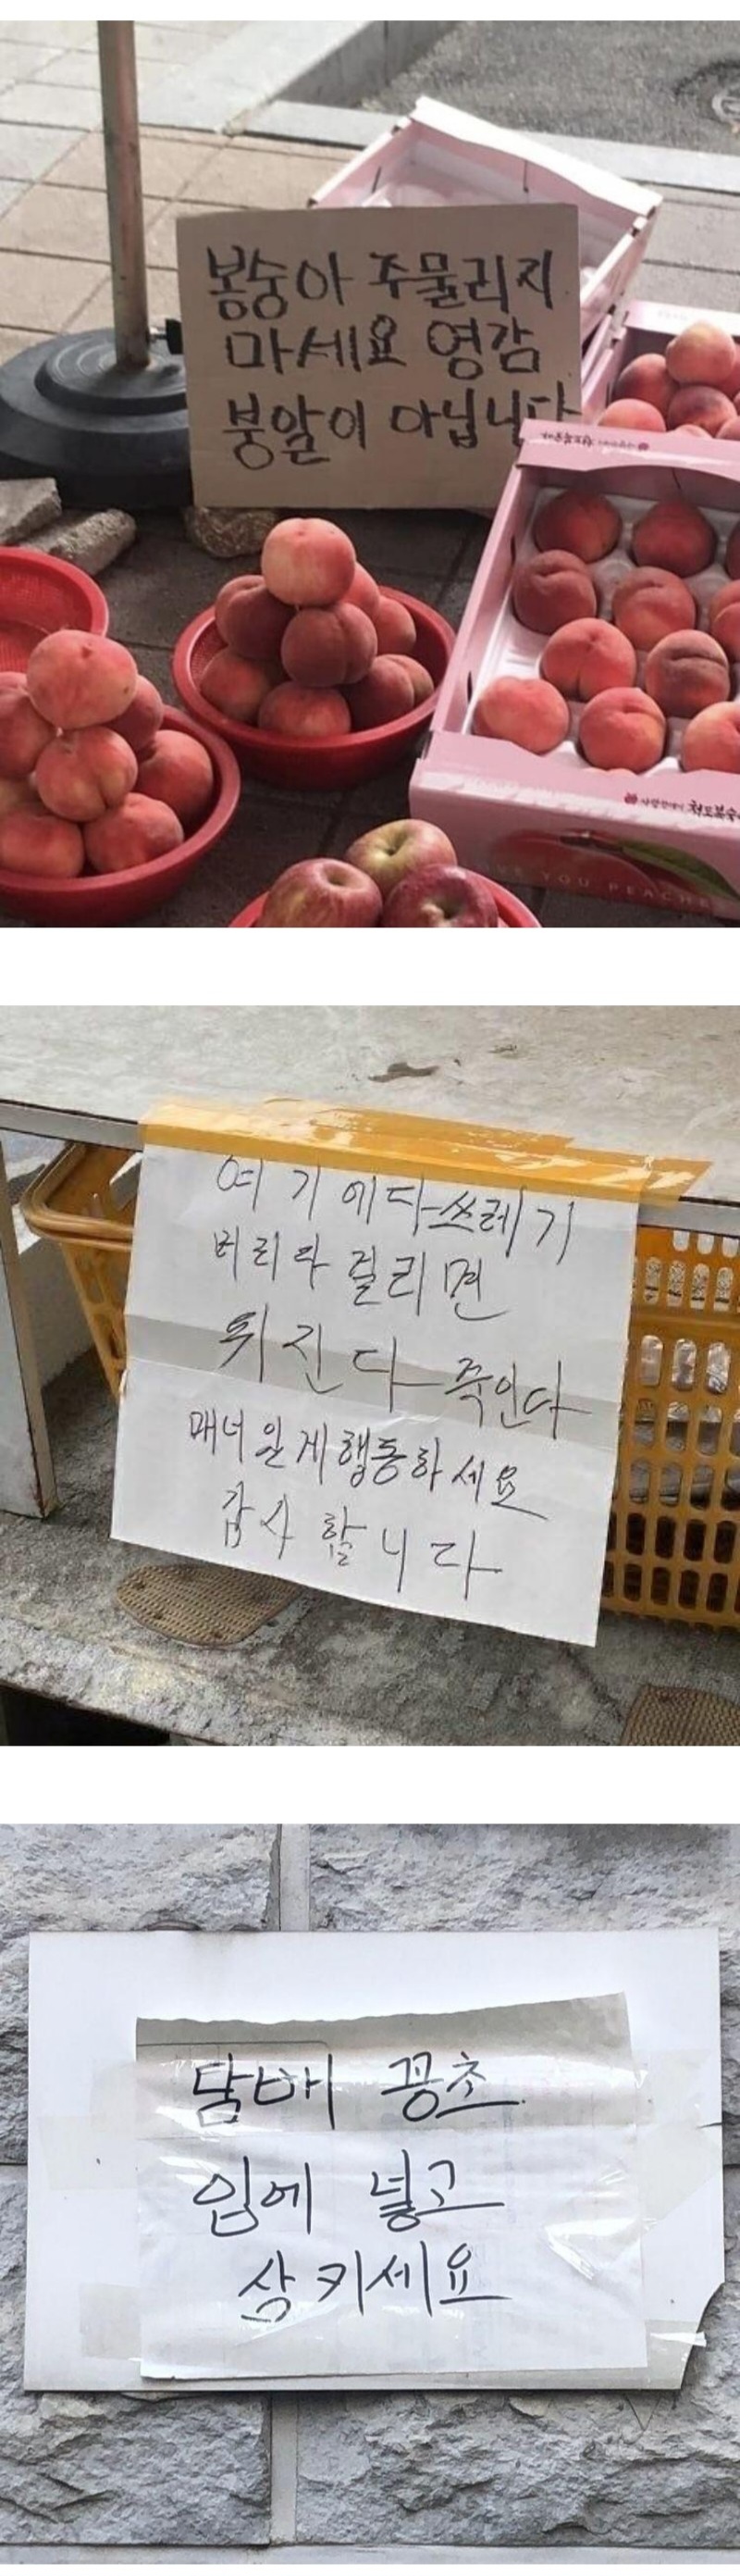 봉숭아 주물리지
마세요 영감
붕알이 아닙니다
YOU PEACH
여기에다 쓰레기
버리다 걸리면
뒤진다 죽인다
매너있게 행동하세요
감사합니다
담배 꽁초
입에 넣고
삼키세요